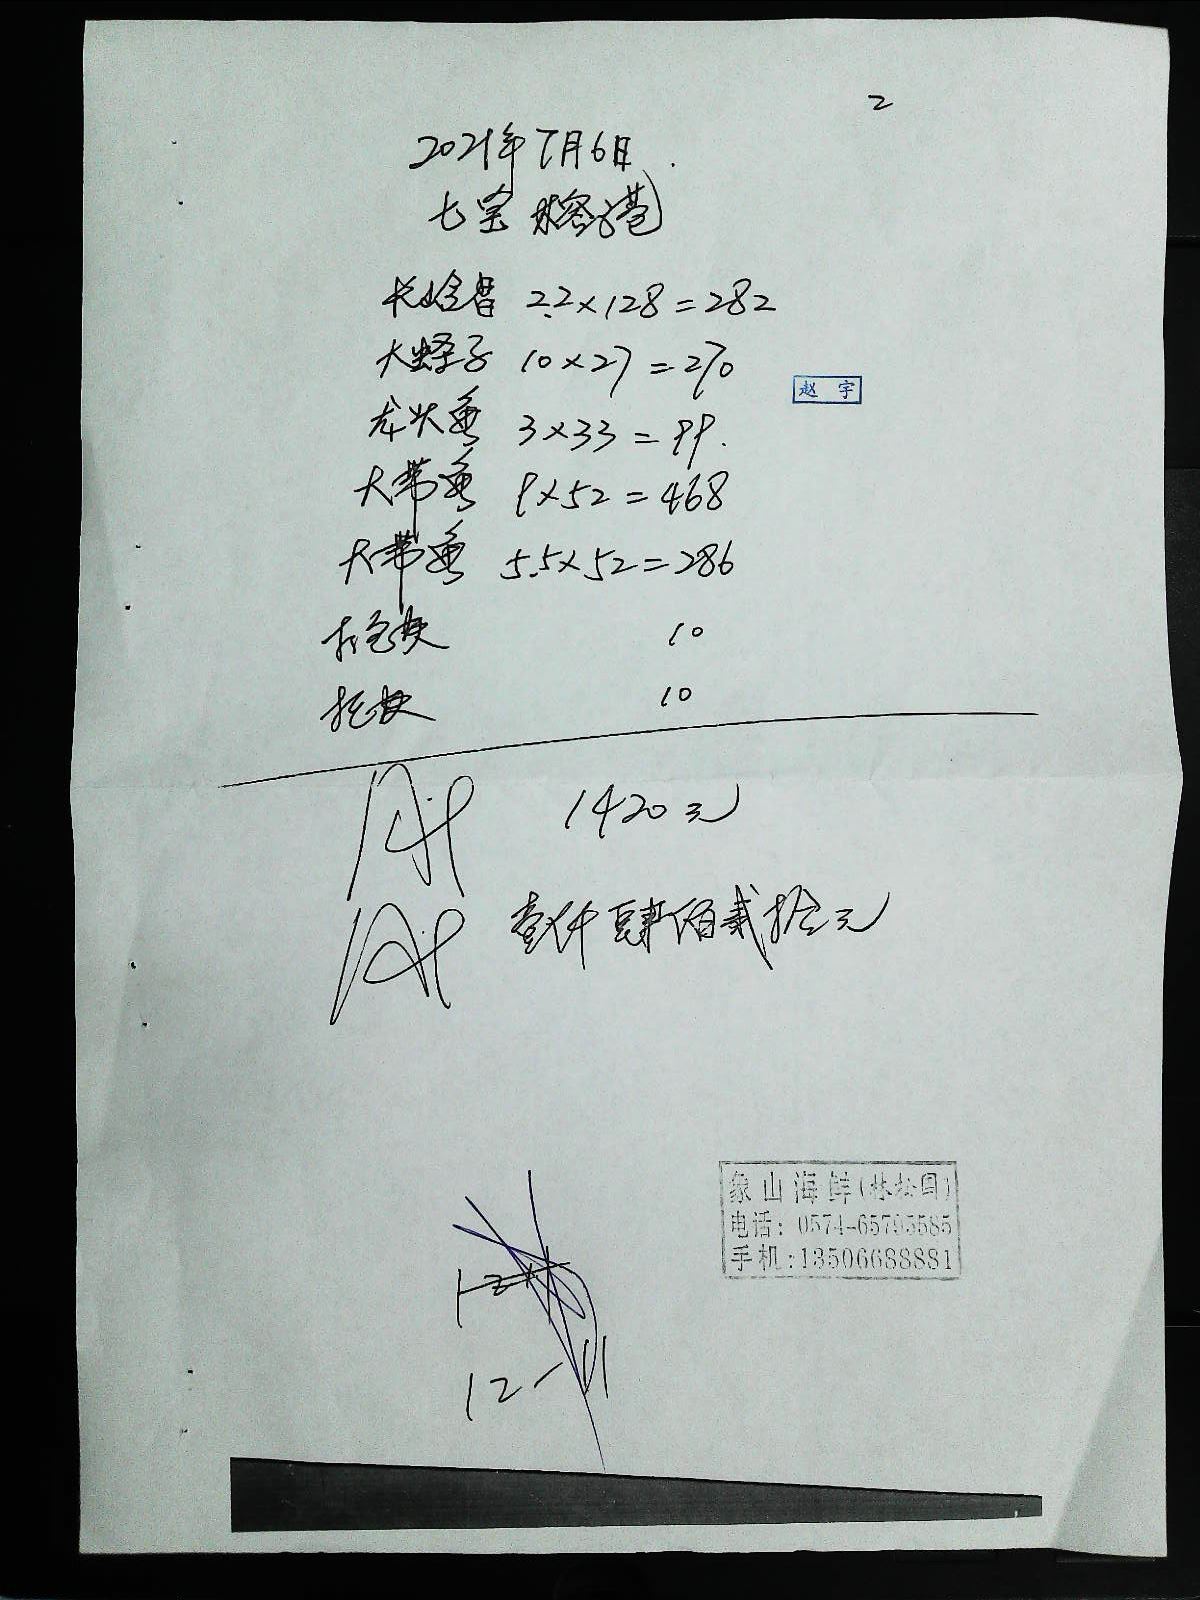 2
2021年7月6日
七宝 榕港
2.2×128=282
大蛏子 10×27=270
赵宇
龙头鱼 3×33=99.
大带鱼 9×52=468
大带鱼 5.5×52=286
打包费 10
托费 10
1420元
壹仟肆佰贰拾元
象山海鲜(林松国)
电话: 0574-65795585
手机:13506688881
12-11